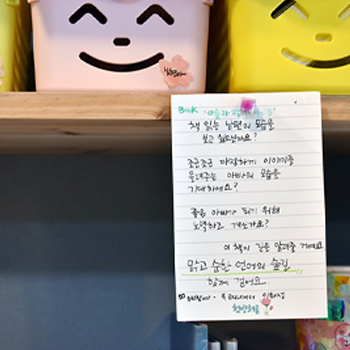 BOOK
책 읽는 남편의 모습을
보고 싶었나요?
조근조근 다정하게 이야기를
들려주는 아빠의 모습을
기대하세요?
좋은 아빠가 되기 위해
노력하고 계신가요?
이 책이 길을 알려줄 거예요.
맑고 순한 언어의 숲길
함께 걸어요